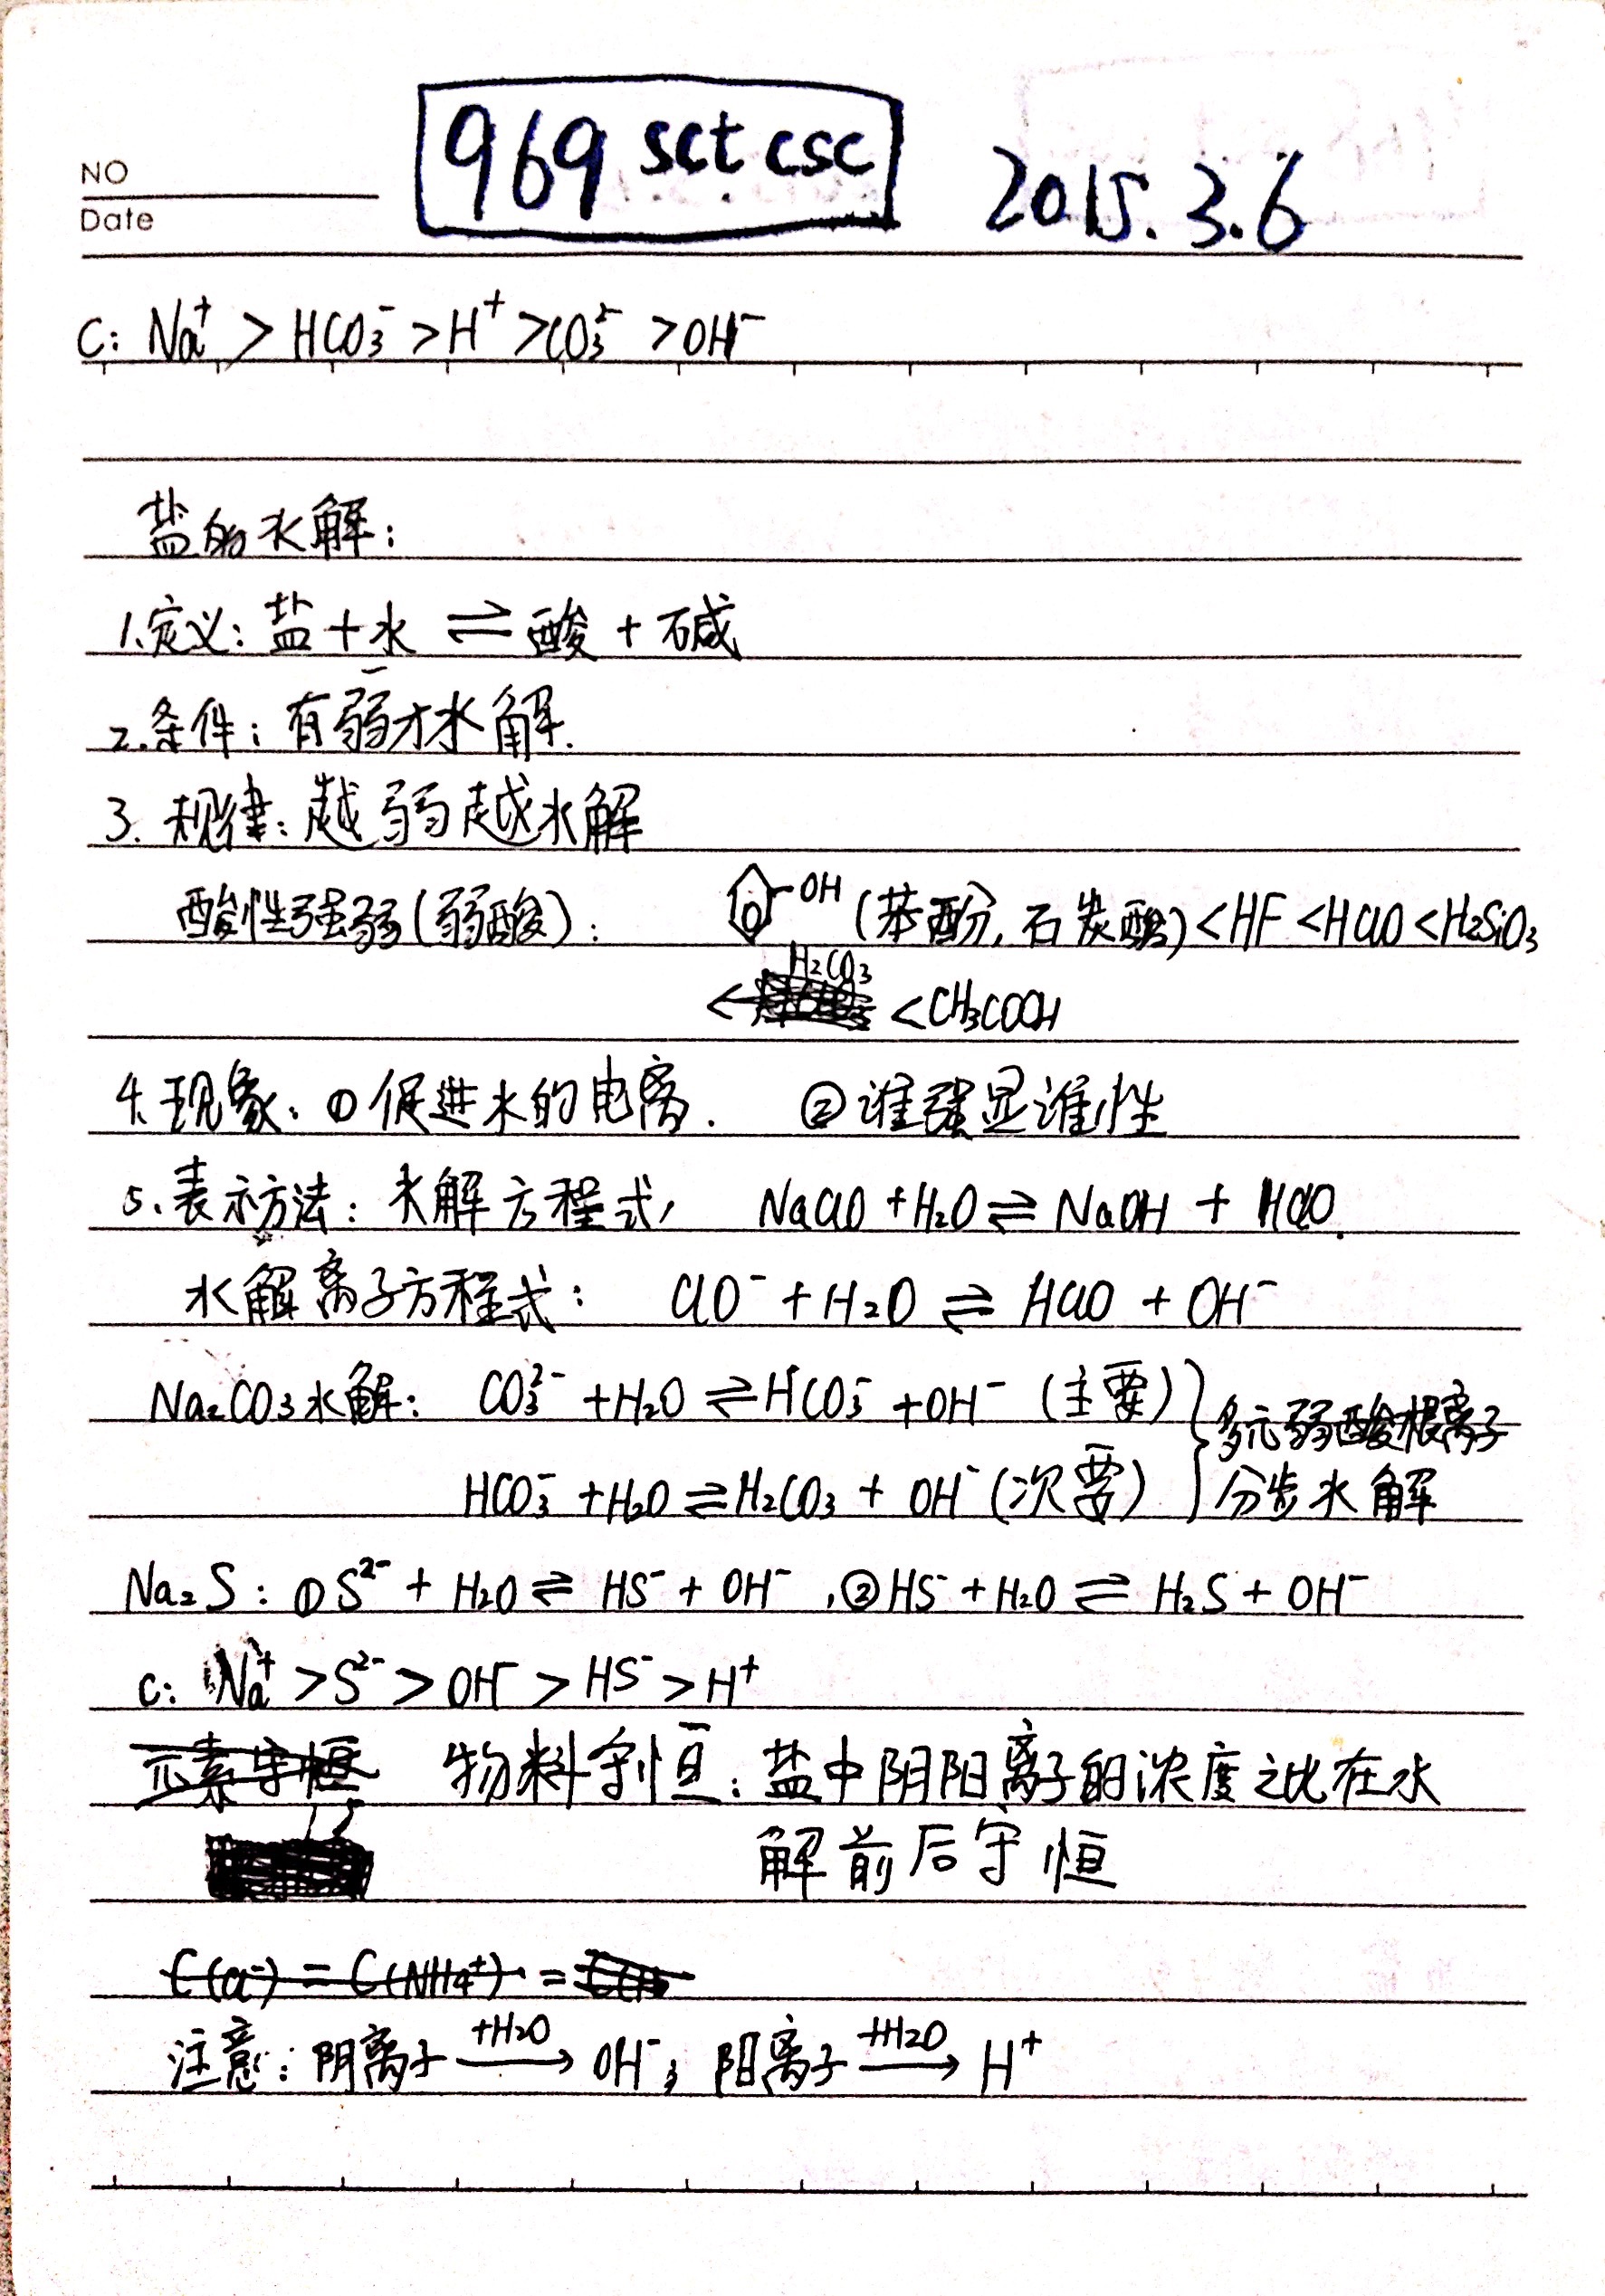 NO
Date
969 sct csc
2015.3.6
C: Na⁺ > HCO₃⁻ > H⁺ > CO₃²⁻ > OH⁻
盐的水解：
1.定义：盐+水 ⇌ 酸 + 碱
2.条件：有弱才水解.
3. 规律：越弱越水解
酸性强弱(弱酸)： -OH (苯酚,石炭酸) < HF < HClO < H₂SiO₃
< H₂CO₃ < CH₃COOH
4.现象：①促进水的电离. ②谁强显谁性
5.表示方法：水解方程式, NaClO + H₂O ⇌ NaOH + HClO.
水解离子方程式： ClO⁻ + H₂O ⇌ HClO + OH⁻
Na₂CO₃水解： CO₃²⁻ + H₂O ⇌ HCO₃⁻ + OH⁻ (主要)
HCO₃⁻ + H₂O ⇌ H₂CO₃ + OH⁻ (次要)
多元弱酸根离子
分步水解
Na₂S：①S²⁻ + H₂O ⇌ HS⁻ + OH⁻ ,②HS⁻ + H₂O ⇌ H₂S + OH⁻
c: Na⁺ > S²⁻ > OH⁻ > HS⁻ > H⁺
元素守恒 物料守恒：盐中阴阳离子的浓度之比在水
解前后守恒
C(Cl⁻) = C(NH₄⁺) =
注意：阴离子 +H₂O → OH⁻; 阳离子 +H₂O → H⁺